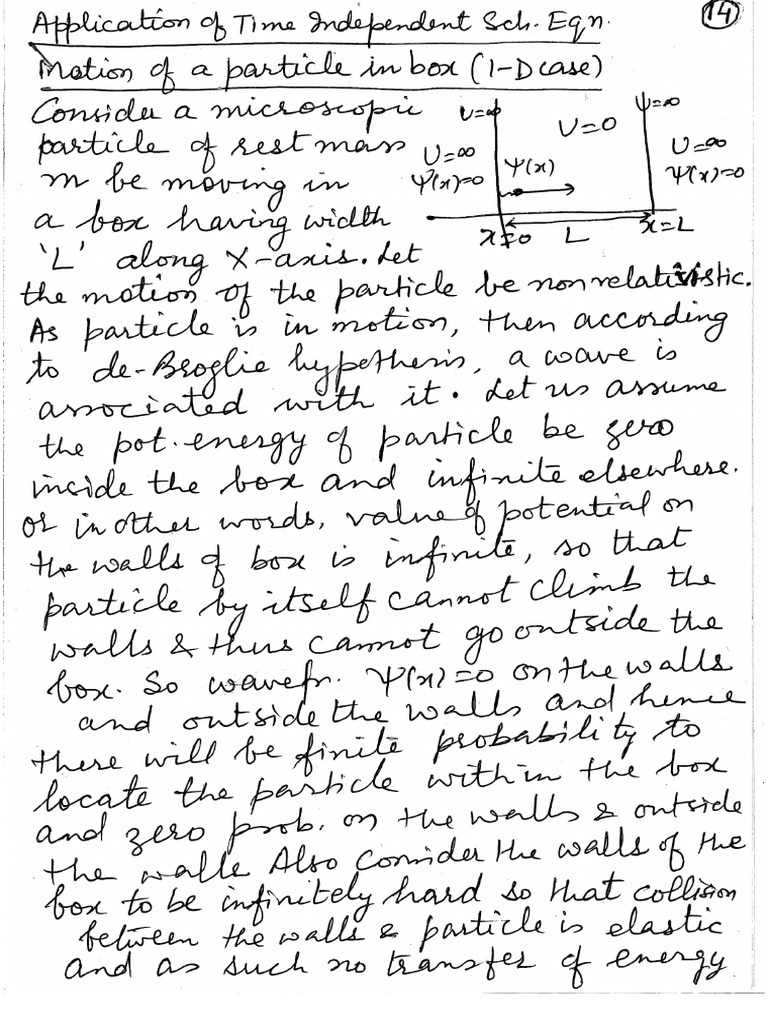 Application of Time Independent Sch. Eqn.
14
Motion of a particle in box (1-D case)
Consider a microscopic
particle of rest mass
m be moving in
a box having width
'L' along X-axis. Let
U=∞
U=0
Ψ=∞
U=∞
Ψ(x)=0
Ψ(x)
U=∞
Ψ(x)=0
x=0
L
x=L
the motion of the particle be nonrelativistic.
As particle is in motion, then according
to de-Broglie hypothesis, a wave is
associated with it. Let us assume
the pot. energy of particle be zero
inside the box and infinite elsewhere.
or in other words, value of potential on
the walls of box is infinite, so that
particle by itself cannot climb the
walls & thus cannot go outside the
box. So wavefn. Ψ(x)=0 on the walls
and outside the walls and hence
there will be finite probability to
locate the particle within the box
and zero prob. on the walls & outside
the walls. Also Consider the walls of the
box to be infinitely hard so that collision
between the walls & particle is elastic
and as such no transfer of energy